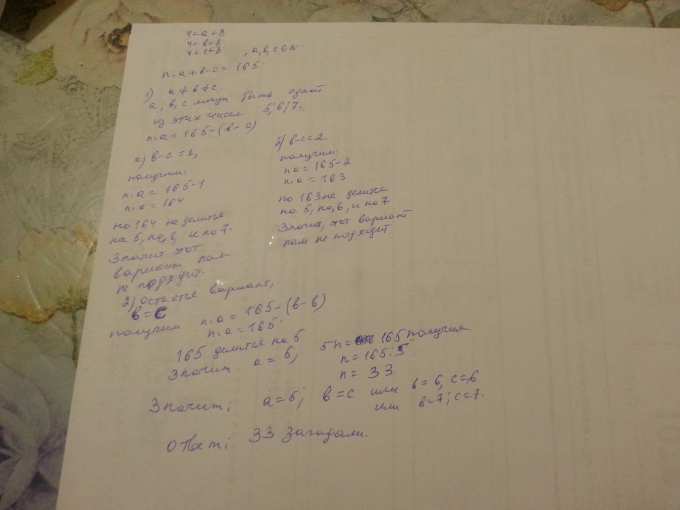 4<a<8
4<b<8
4<c<8
, a,b,c ∈ N
n·a+b-c=165
1) a≠b≠c.
a, b, c могут быть одно
из этих чисел 5,6,7.
n·a=165-(b-c)
a) b-c=1,
получим:
n·a=165-1
n·a=164
но 164 не делится
на 5, на 6, и на 7.
Значит этот
вариант нам
не подходит.
2) b-c=2
получим:
n·a=165-2
n·a=163
но 163 не делится
на 5, на 6, и на 7
Значит, этот вариант
нам не подходит.
2) остаётся вариант,
b=c
получим n·a=165-(b-b)
n·a=165.
165 делится на 5
Значит a=5, 5n=165 получим
n=165:5
n=33
Значит; a=5; b=c или b=6, c=6
или b=7; c=7.
Ответ; 33 загадали.